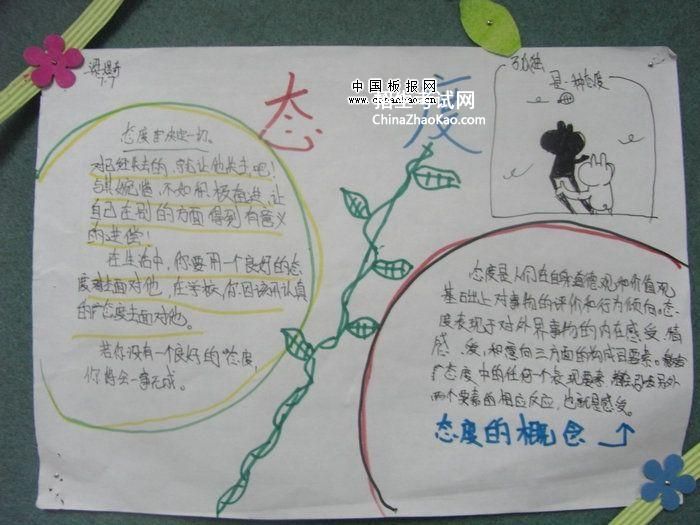 态度
中国板报网
www.cnbanbao.cn
招生考试网
ChinaZhaoKao.com
7.7
孤独
是一种态度
态度决定一切。
对已经失去的,就让他失去吧!
与其婉惜,不如积极奋进,让
自己在别的方面得到有意义
的进偿!
在生活中,你要用一个良好的态
度去面对他,在学校,你因该用认真
的态度去面对他。
若你没有一个良好的态度,
你将会一事无成。
态度是人们在自身道德观和价值观
基础上对事物的评价和行为倾向。态
度表现于对外界事物的内在感受、情
感、爱,和意向三方面的构成因要素。
态度中的任何一个表现要素,
两个要素的相应反应,也就是感受。
态度的概念